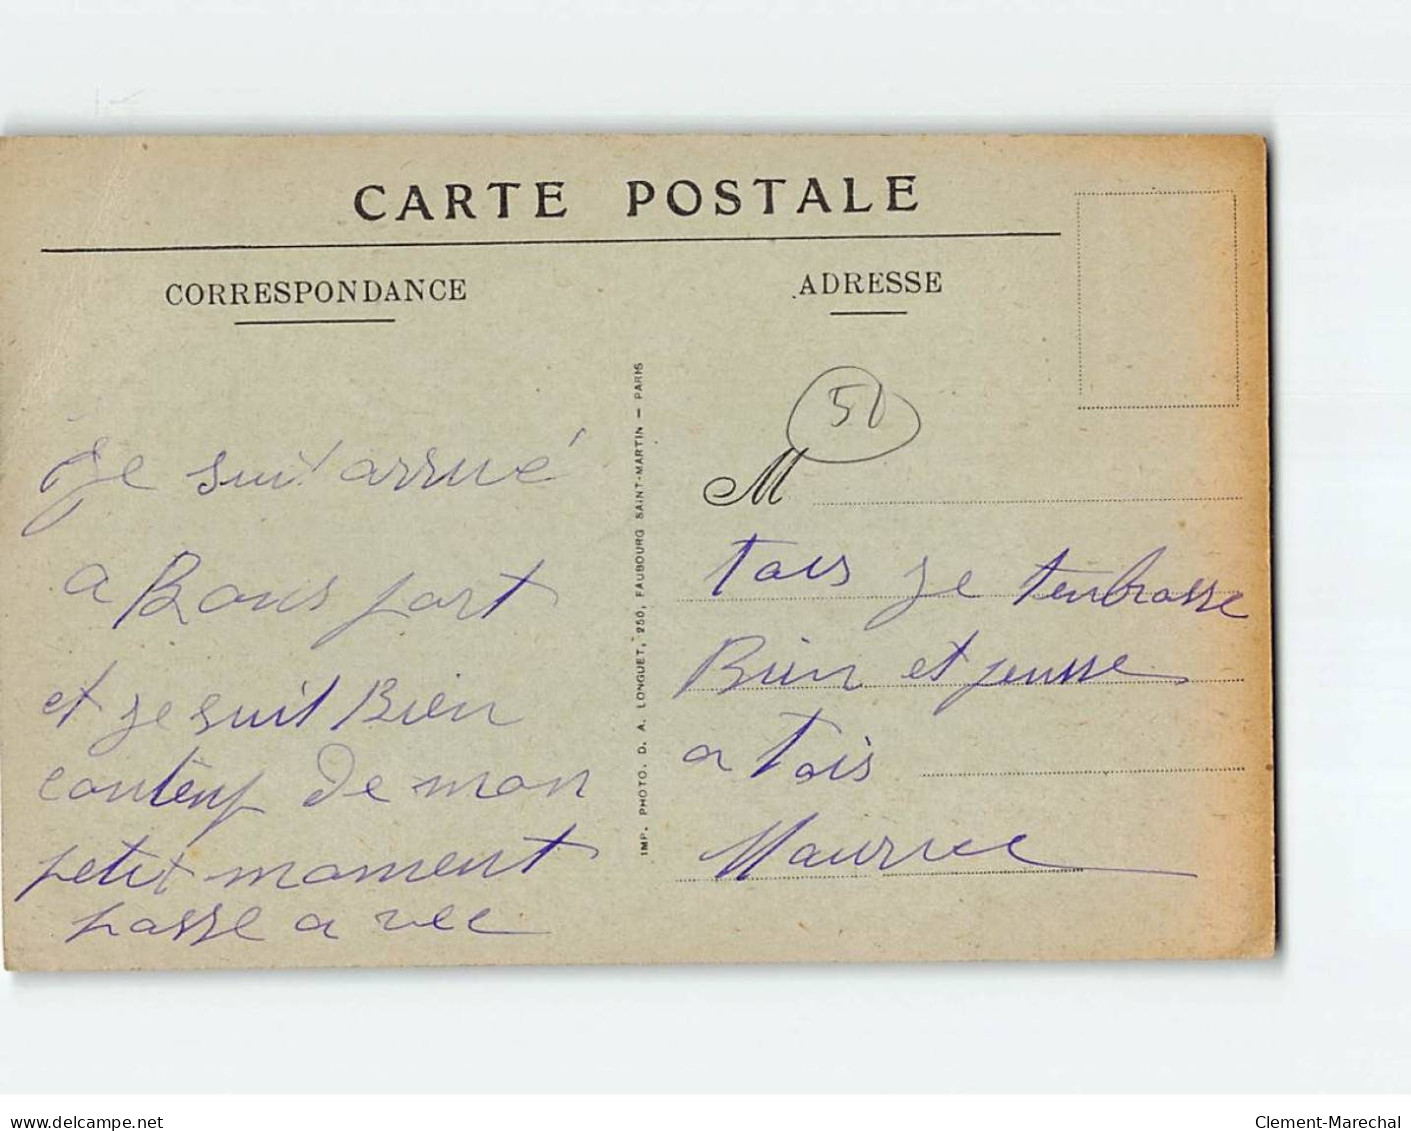 CARTE POSTALE
CORRESPONDANCE
ADRESSE
Je suit arrué
a Bons port
et je suit Bien
contenp De mon
petit moment
passe a vec
IMP. PHOTO. D. A. LONGUET, 250, FAUBOURG SAINT-MARTIN — PARIS
50
M
tois je tenbrasse
Bien et pensse
a tois
Maurice
delcampe.net
Clement-Marechal